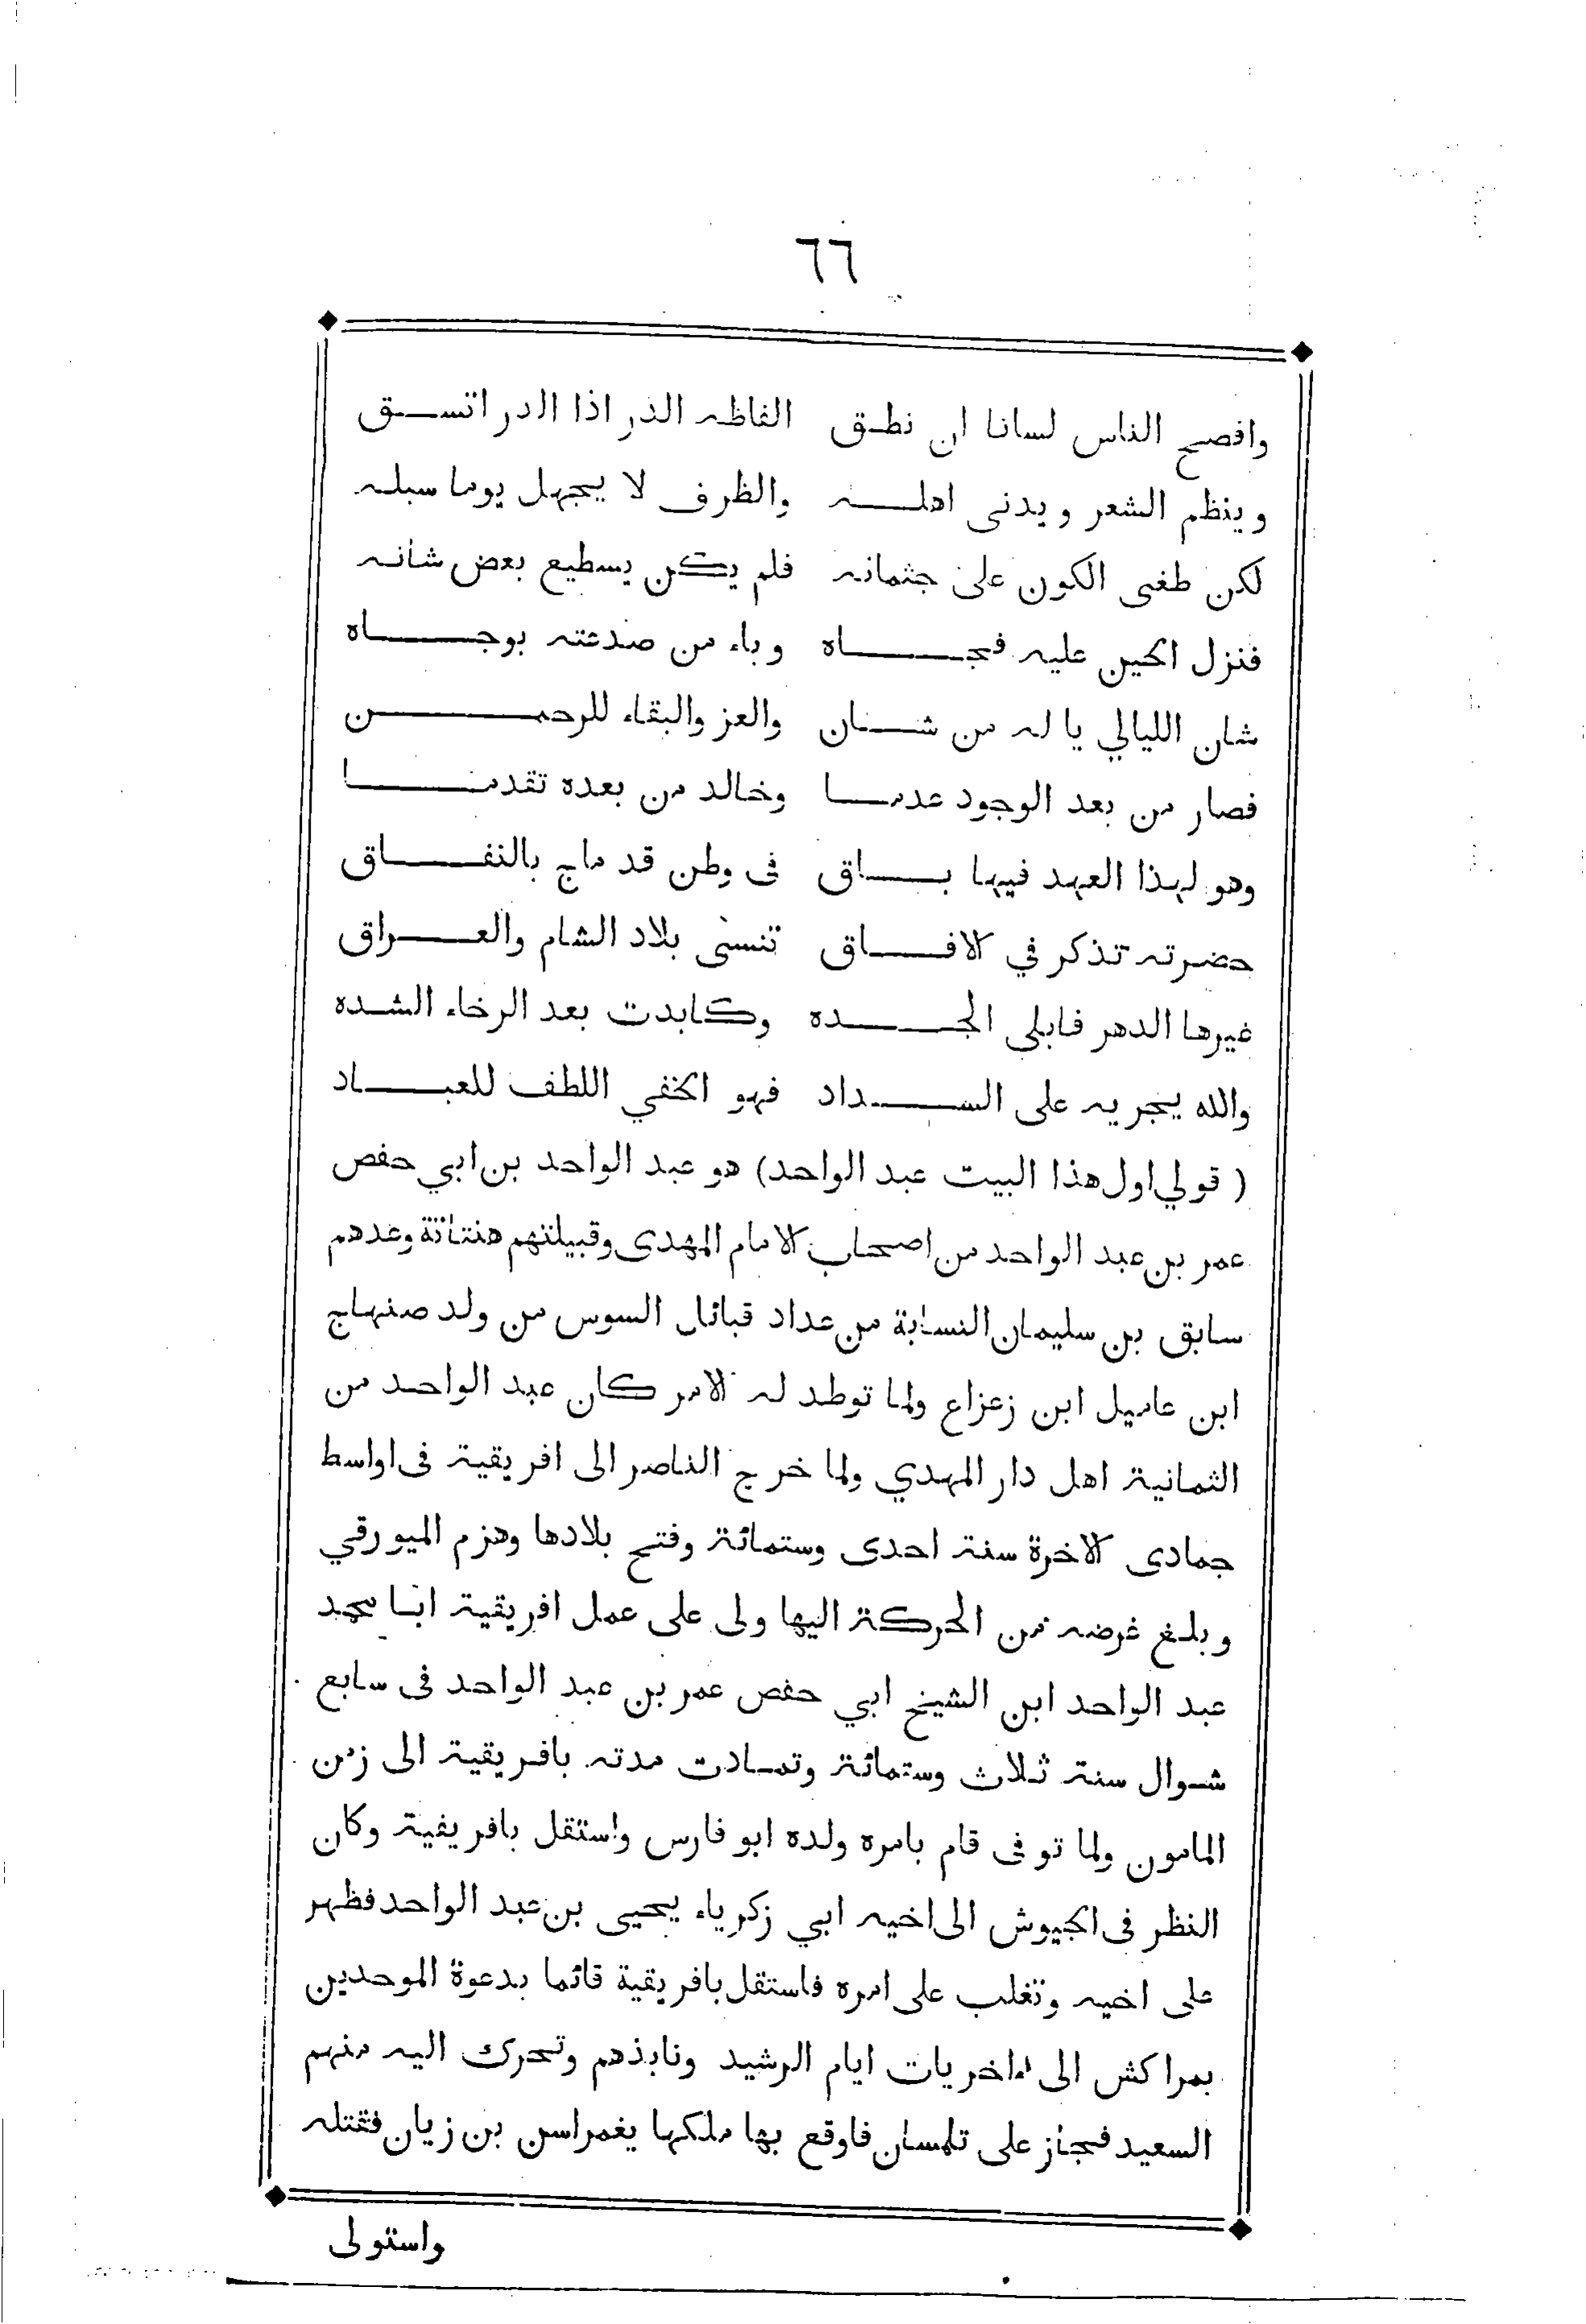 ٦٦
وافصح الناس لسانا ان نطـق الفاظه الدر اذا الدر اتســق
وينظم الشعر ويدنى اهلــه والظرف لا يجهل يوما سبلـه
لكن طغى الكون على جثمانه فلم يكن يسطيع بعض شانـه
فنزل الحين عليه فجــاه وباء من صدعته بوجــاه
شان الليالي يا له من شــان والعز والبقاء للرحمــن
فصار من بعد الوجود عدمــا وخالد من بعده تقدمــا
وهو لهذا العهد فيها بــاق فى وطن قد ماج بالنفــاق
حضرته تذكر في الافــاق تنسى بلاد الشام والعــراق
غيرها الدهر فابلى الجــده وكابدت بعد الرخاء الشـده
والله يجريه على الســداد فهو الخفي اللطف للعبــاد
( قولي اول هذا البيت عبد الواحد) هو عبد الواحد بن ابي حفص
عمر بن عبد الواحد من اصحاب الامام المهدى وقبيلتهم هنتاتة وعدهم
سابق بن سليمان النسابة من عداد قبائل السوس من ولد صنهاج
ابن عاميل ابن زعزاع ولما توطد له الامر كان عبد الواحد من
الثمانية اهل دار المهدي ولما خرج الناصر الى افريقية فى اواسط
جمادى الاخرة سنة احدى وستمائة وفتح بلادها وهزم الميورقي
وبلغ غرضه من الحركة اليها ولى على عمل افريقية ابا محمد
عبد الواحد ابن الشيخ ابي حفص عمر بن عبد الواحد فى سابع
شوال سنة ثلاث وستمائة وتمادت مدته بافريقية الى زمن
المامون ولما توفى قام بامره ولده ابو فارس واستقل بافريقية وكان
النظر فى الجيوش الى اخيه ابي زكرياء يحيى بن عبد الواحد فظهر
على اخيه وتغلب على امره فاستقل بافريقية قائما بدعوة الموحدين
بمراكش الى اخريات ايام الرشيد ونابذهم وتحرك اليه منهم
السعيد فجاز على تلمسان فاوقع بها ملكها يغمراسن بن زيان فقتله
واستولى